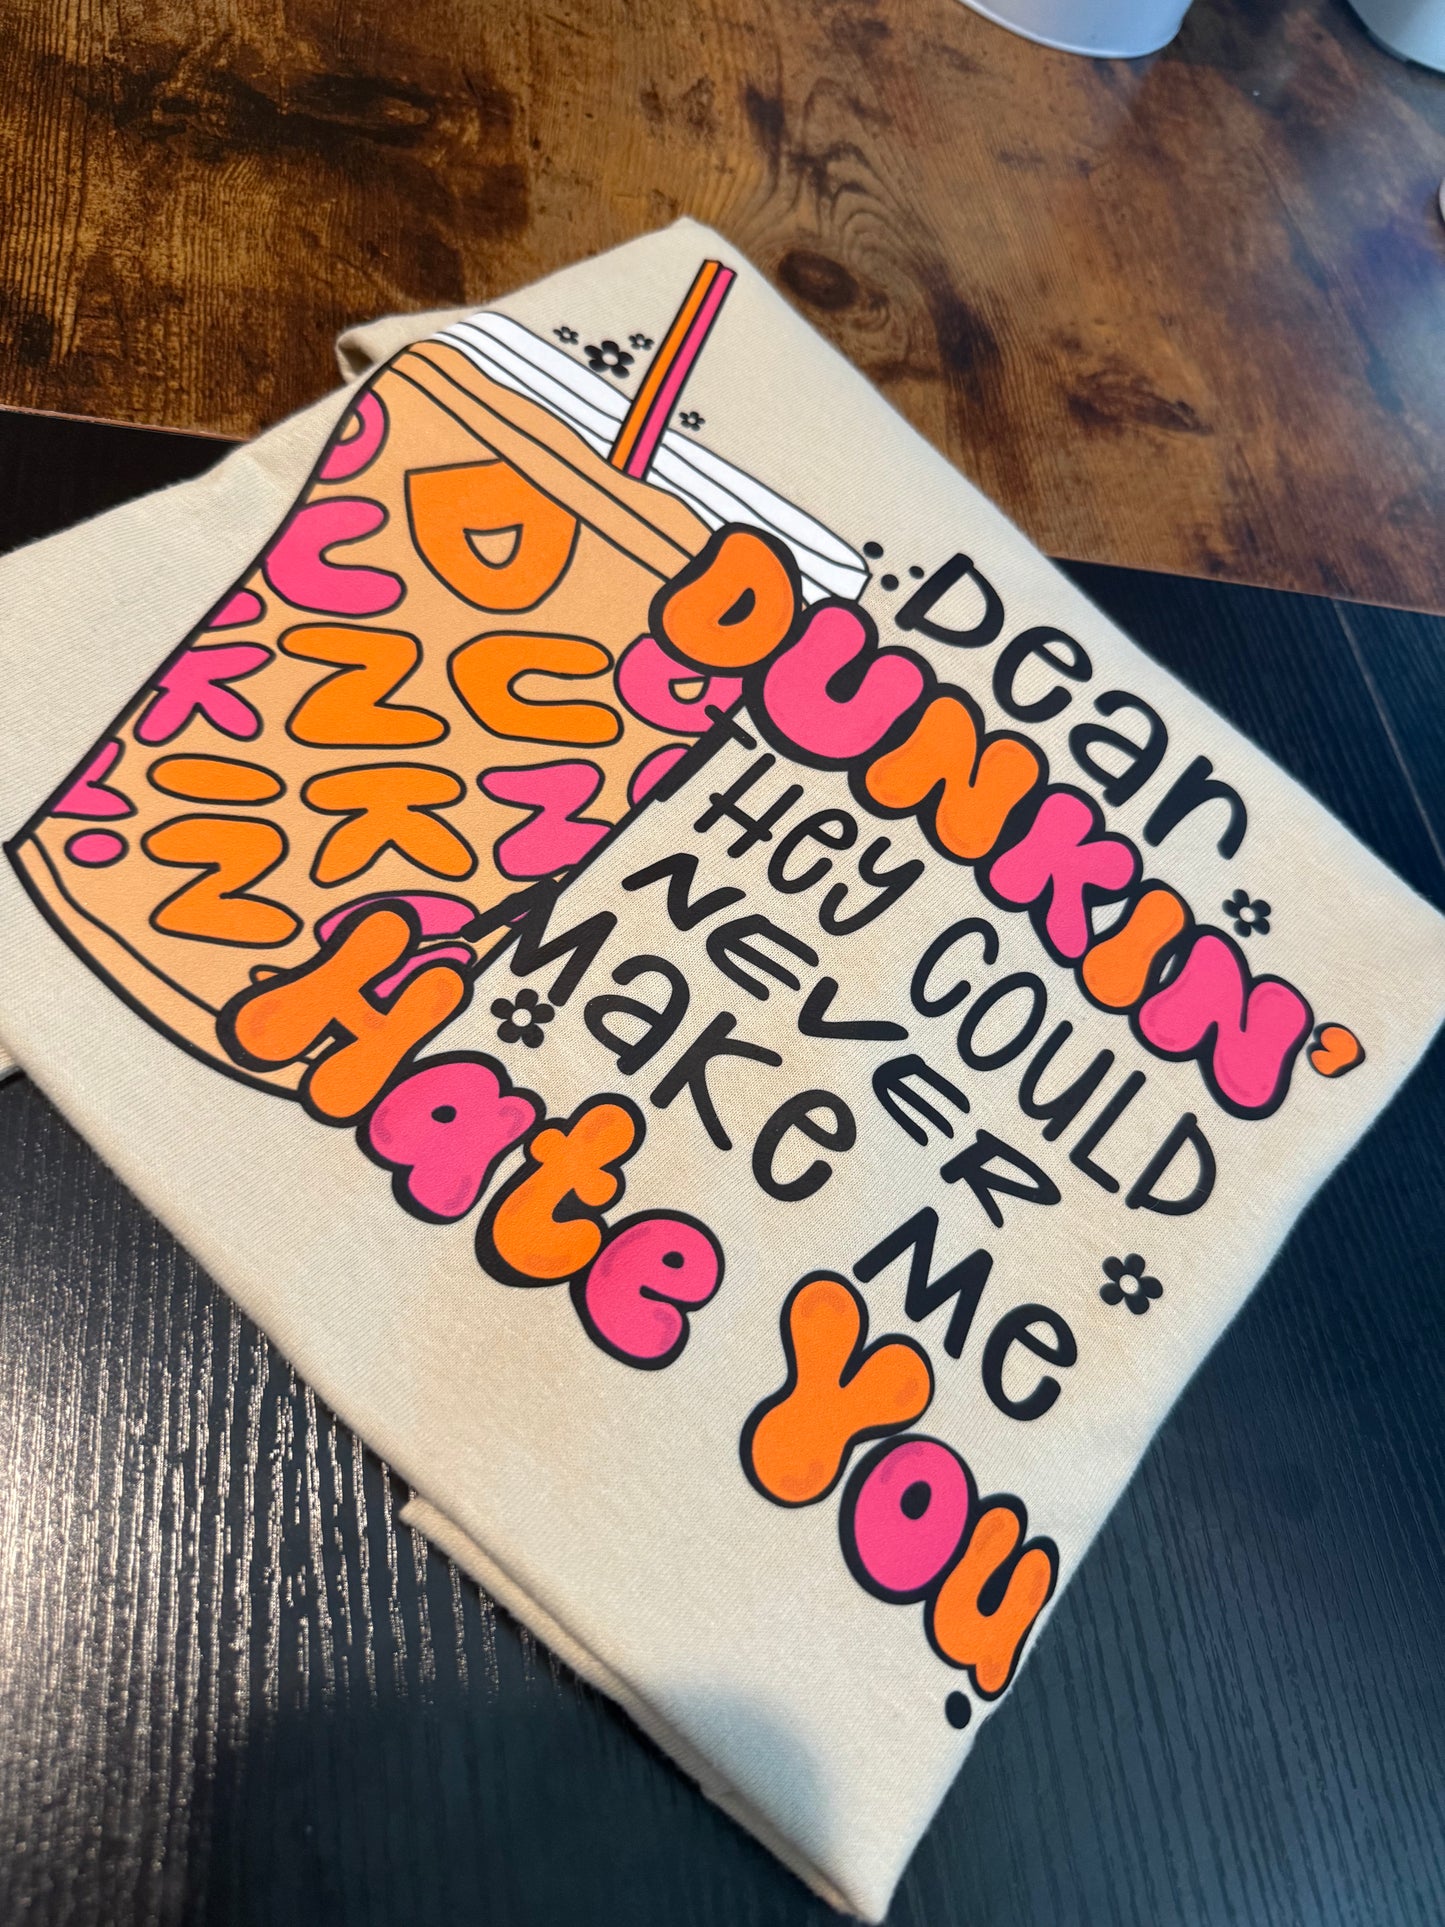 Dear
DUNKIN'
THEY COULD
NEVER
Make Me
Hate You
D
U
N
K
IN
D
U
N
K
IN
D
N